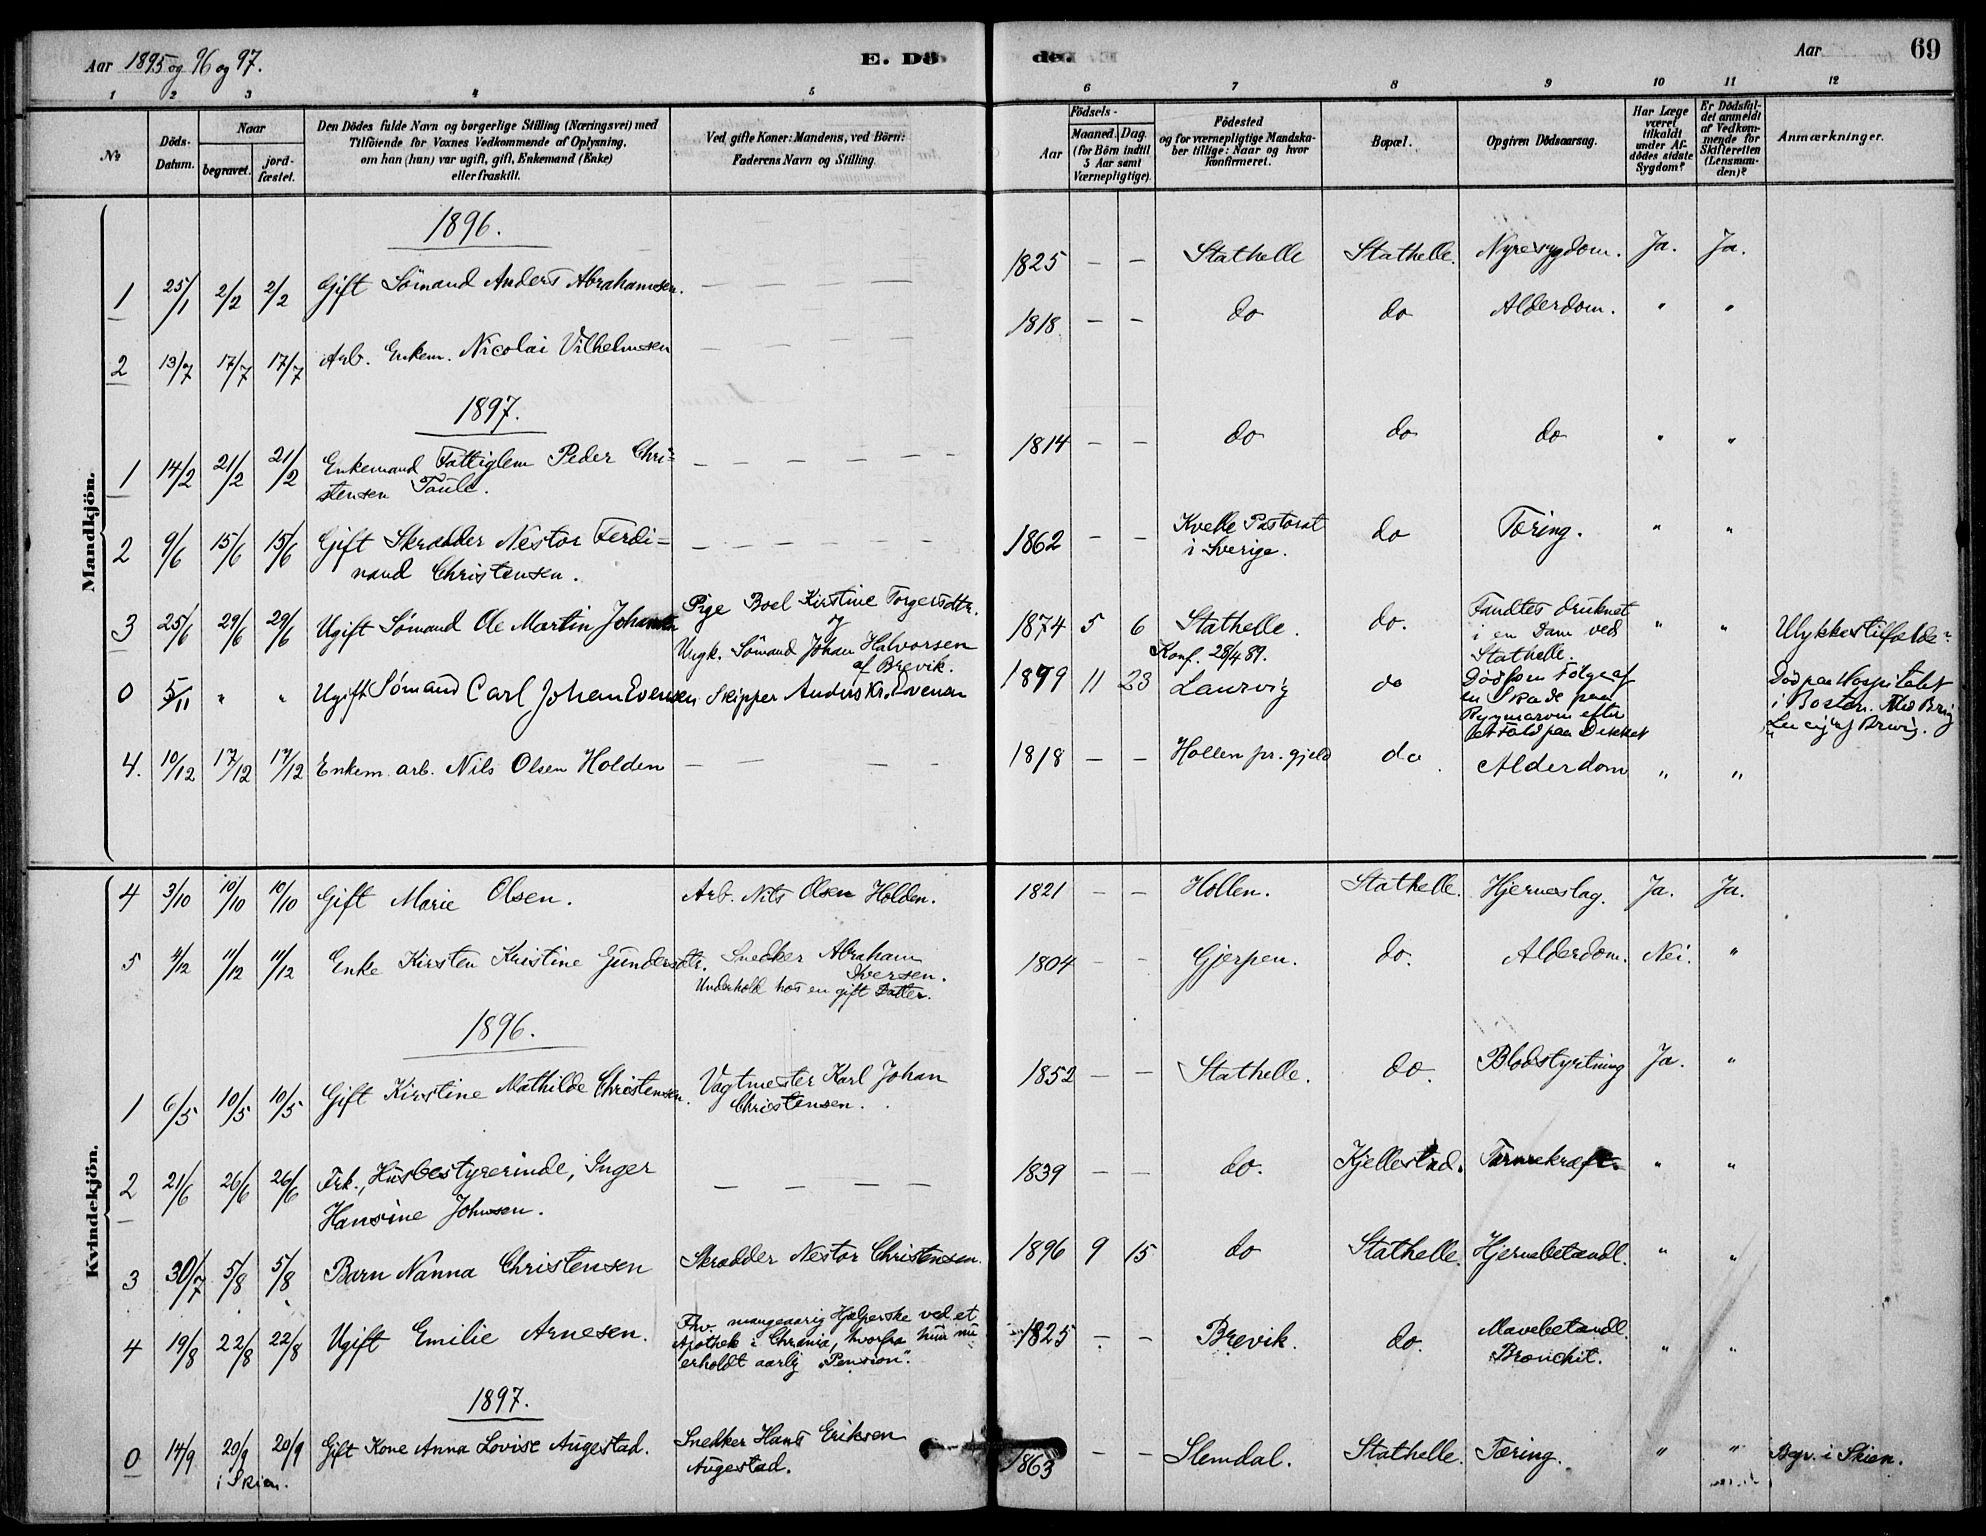 Aar 1895 og 96 og 97.
E. Döde.
Aar
69
1 2 3 4 5 6 7 8 9 10 11 12
No
Döds-Datum.
Naar
begravet.
jordfæstet.
Den Dödes fulde Navn og borgerlige Stilling (Næringsvei) med
Tilföiende for Voxnes Vedkommende af Oplysning,
om han (hun) var ugift, gift, Enkemand (Enke)
eller fraskilt.
Ved gifte Koner: Mandens, ved Börn:
Faderens Navn og Stilling.
Födsels-
Aar
Maaned. Dag.
(for Börn indtil
5 Aar samt
Værnepligtige).
Födested
og for værnepligtige Mandskaber tillige: Naar og hvor
konfirmeret.
Bopæl.
Opgiven Dödsaarsag.
Har Læge
været
tilkaldt
under Afdödes sidste
Sygdom?
Er Dödsfaldet anmeldt
af Vedkommende for
Skifteretten
(Lensmanden)?
Anmærkninger.
Mandkjön.
1896.
1 25/1 2/2 2/2 Gift Sømand Anders Abrahamsen. — — — — 1825 — — Stathelle Stathelle. Nyresygdom. Ja. Ja.
2 13/7 17/7 17/7 Arb. Enkem. Nicolai Vilhelmsen — — — — 1818 — — do do Alderdom. " "
1897.
1 14/2 21/2 21/2 Enkemand Fattiglem Peder Chri- — — — — 1814 — — do do do " "
stensen Taule.
2 9/6 15/6 15/6 Gift Skrædder Nestor Ferdi- — — — — 1862 — — Kvelle Pastorat do Tæring. " "
nand Christensen. i Sverige.
3 25/6 29/6 29/6 Ugift Sømand Ole Martin Johansen Pige Boel Kirstine Torgersdtr. 1874 5 6 Stathelle. do. Fandtes druknet " " Ulykkestilfælde
og i en Dam ved
Ungk. Sømand Johan Halvorsen Konf. 28/4 89. Stathelle.
af Brevik.
0 5/11 " " Ugift Sømand Carl Johan Evensen Skipper Anders Kr. Evensen 1879 11 23 Laurvig do Død som Følge af Død paa Hospitalet
en Skade paa i Boston. Med Brig
Rygmarven efter af Brevig.
et Fald paa Dækket
4. 10/12 17/12 17/12 Enkem. arb. Nils Olsen Holden — — — — 1818 — — Hollen pr. gjeld do Alderdom " "
Kvindekjön.
4 3/10 10/10 10/10 Gift Marie Olsen. Arb. Nils Olsen Holden. 1821 — — Hollen. Stathelle. Hjerneslag. Ja. Ja.
5 4/12 11/12 11/12 Enke Kirsten Kristine Gundersdtr. Snedker Abraham 1804 — — Gjerpen. do. Alderdom. Nei. "
Iversen.
Underhold hos en gift Datter.
1896.
1 6/5 10/5 10/5 Gift Kirstine Mathilde Christensen. Vagtmester Karl Johan 1852 — — Stathelle. do. Blodstyrtning Ja. "
Christensen.
2 21/6 26/6 26/6 Frk., Husbestyrerinde, Inger — — — — 1839 — — do. Kjellestad. " "
Hansine Johnsen.
3 30/7 5/8 5/8 Barn Nanna Christensen Skrædder Nestor Christensen. 1896 9 15 do Stathelle. Hjernebetændl. " "
4 19/8 22/8 22/8 Ugift Emilie Arnesen. Fhv. mangeaarig Hjælperske ved et 1825 — — Brevik. do. Mavebetændl. " "
Apothek i Chrania, hvorfra hun nu Bronchit.
erholdt aarlig "Pension".
1897.
0 14/9 20/9 20/9 Gift Kone Anna Lovise Augestad. Snedker Hans Eriksen 1863 — — Slemdal. Stathelle. Tæring. " " Begr. i Skien.
i Skien. Augestad.